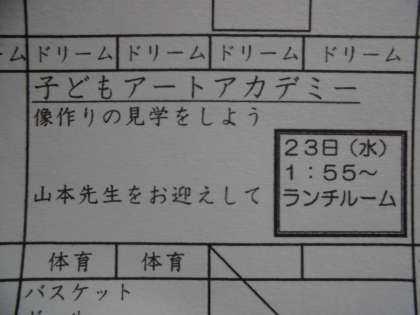 ーム ドリーム ドリーム ドリーム ドリーム
子どもアートアカデミー
像作りの見学をしよう
23日(水)
1:55～
山本先生をお迎えして
ランチルーム
体育 体育
バスケット